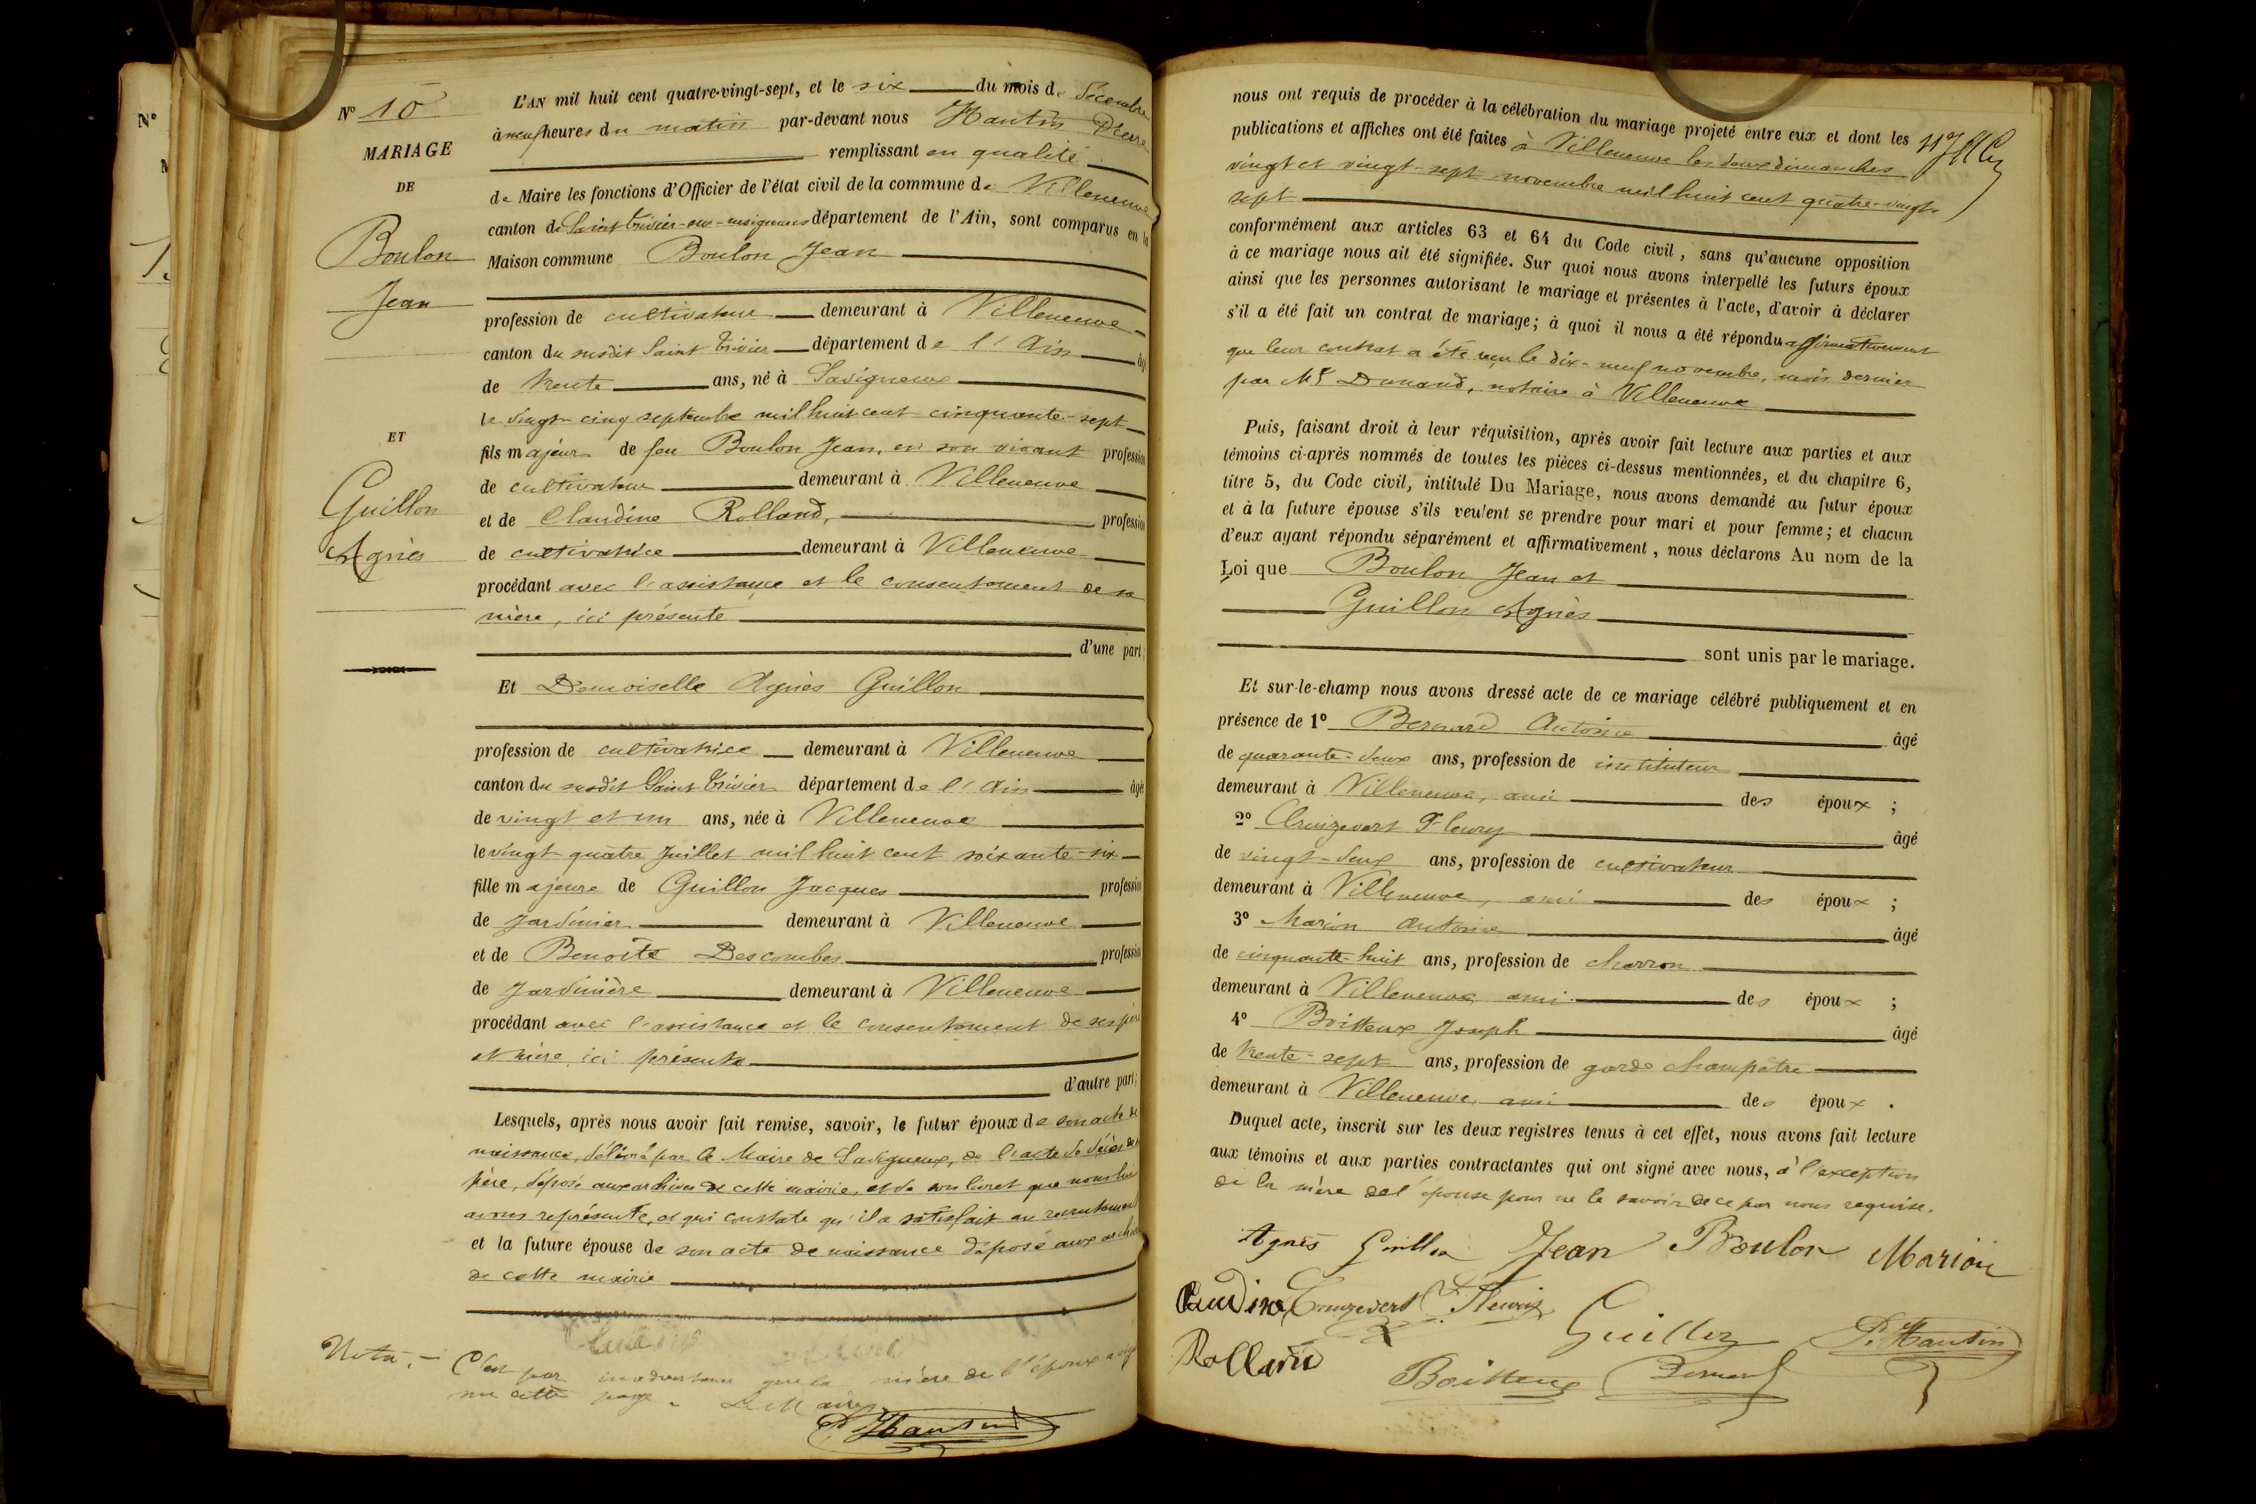 N° 10
MARIAGE
DE
Boulon
Jean
ET
Guillon
Agnès
L'AN mil huit cent quatre-vingt-sept, et le six du mois de décembre
à neuf heures du matin par-devant nous Hautin Pierre
remplissant en qualité
de Maire les fonctions d'Officier de l'état civil de la commune de Villeneuve
canton de Saint Trivier-sur-moignans département de l'Ain, sont comparus en la
Maison commune Boulon Jean
profession de cultivateur demeurant à Villeneuve
canton du susdit Saint Trivier département de l'Ain âgé
de trente ans, né à Savigneux
le vingt-cinq septembre mil huit cent cinquante-sept
fils majeur de feu Boulon Jean, en son vivant profession
de cultivateur demeurant à Villeneuve
et de Claudine Rolland, profession
de cultivatrice demeurant à Villeneuve
procédant avec l'assistance et le consentement de sa
mère, ici présente
d'une part;
Et Demoiselle Agnès Guillon
profession de cultivatrice demeurant à Villeneuve
canton du susdit Saint Trivier département de l'Ain âgée
de vingt et un ans, née à Villeneuve
le vingt quatre Juillet mil huit cent soixante-six
fille majeure de Guillon Jacques profession
de Jardinier demeurant à Villeneuve
et de Benoîte Descombes profession
de Jardinière demeurant à Villeneuve
procédant avec l'assistance et le consentement de ses père
et mère, ici présents
d'autre part;
Lesquels, après nous avoir fait remise, savoir, le futur époux de son acte de
naissance, délivré par le Maire de Savigneux, de l'acte de décès de
père, déposé aux archives de cette mairie, et de son livret que nous lui
avons représenté, et qui constate qu'il a satisfait au recrutement
et la future épouse de son acte de naissance déposé aux archives
de cette mairie
Nota. — C'est par inadvertance que la mère de l'époux a signé
sur cette page. Le Maire
P. Hautin
nous ont requis de procéder à la célébration du mariage projeté entre eux et dont les
publications et affiches ont été faites à Villeneuve les deux dimanches
vingt et vingt-sept novembre mil huit cent quatre-vingt-
sept
conformément aux articles 63 et 64 du Code civil, sans qu'aucune opposition
à ce mariage nous ait été signifiée. Sur quoi nous avons interpellé les futurs époux
ainsi que les personnes autorisant le mariage et présentes à l'acte, d'avoir à déclarer
s'il a été fait un contrat de mariage; à quoi il nous a été répondu affirmativement
que leur contrat a été reçu le dix-neuf novembre, mois dernier
par Me Dunand, notaire à Villeneuve
Puis, faisant droit à leur réquisition, après avoir fait lecture aux parties et aux
témoins ci-après nommés de toutes les pièces ci-dessus mentionnées, et du chapitre 6,
titre 5, du Code civil, intitulé Du Mariage, nous avons demandé au futur époux
et à la future épouse s'ils veulent se prendre pour mari et pour femme; et chacun
d'eux ayant répondu séparément et affirmativement, nous déclarons Au nom de la
Loi que Boulon Jean et
Guillon Agnès
sont unis par le mariage.
Et sur-le-champ nous avons dressé acte de ce mariage célébré publiquement et en
présence de 1° Bernard Antoine âgé
de quarante-deux ans, profession de instituteur
demeurant à Villeneuve, ami des époux ;
2° Cruizevert Fleury âgé
de vingt-deux ans, profession de cultivateur
demeurant à Villeneuve, ami des époux ;
3° Marion Antoine âgé
de cinquante-huit ans, profession de charron
demeurant à Villeneuve, ami des époux ;
4° Boitteux Joseph âgé
de trente-sept ans, profession de garde champêtre
demeurant à Villeneuve, ami des époux .
Duquel acte, inscrit sur les deux registres tenus à cet effet, nous avons fait lecture
aux témoins et aux parties contractantes qui ont signé avec nous, à l'exception
de la mère de l'épouse pour ne le savoir de ce par nous requise.
Agnès Guillon Jean Boulon Marion
Claudine Cruizevert Fleury Guillon P. Hautin
Rolland Boitteux Bernard